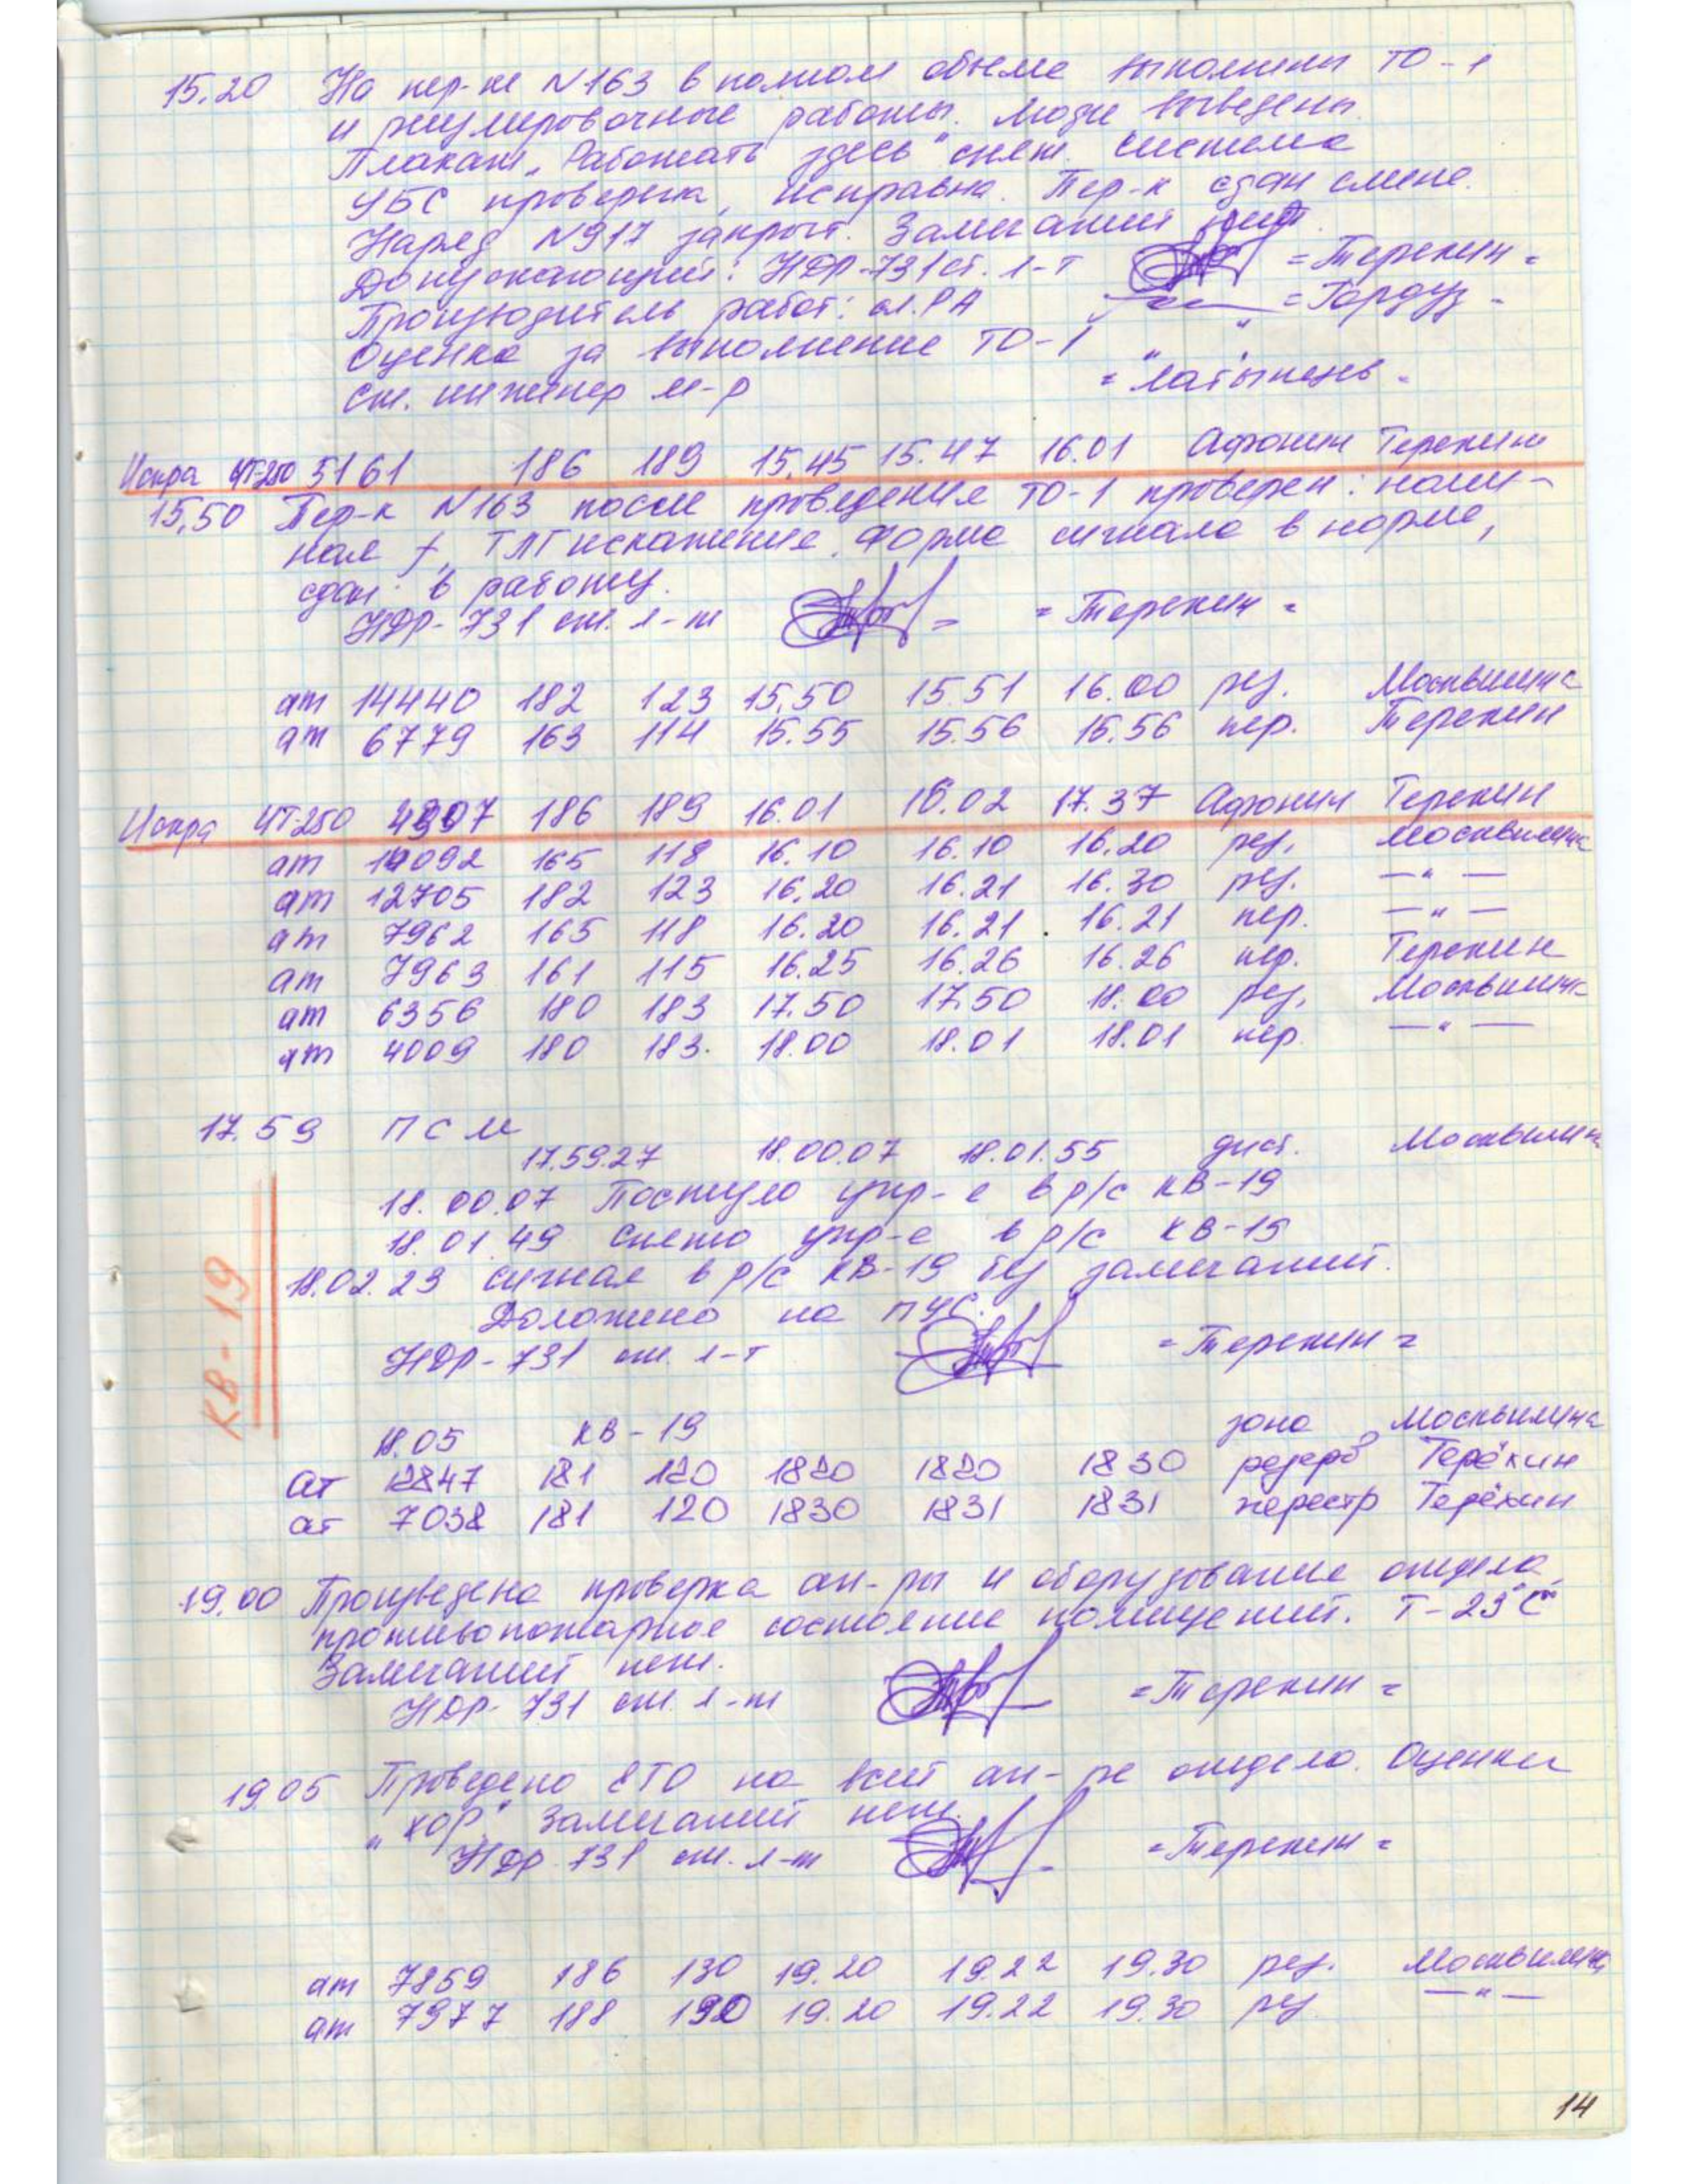 15.20 На пер-ке N163 в полном объеме выполнены ТО-1
и регулировочные работы. Люди выведены.
Плакат „Работать здесь" снят. Система
УБС проверена, исправна. Пер-к сдан смене.
Наряд N917 закрыт. Замечаний нет.
Допускающий: НДР-731 ст. л-т = Терехин =
Производитель работ: сл. РА = Гордуз =
Оценка за выполнение ТО-1 " "
Ст. инженер м-р = Латыпень =
Искра ЧТ-250 5161 186 189 15.45 15.47 16.01 Афонин Терехин
15.50 Пер-к N163 после проведения ТО-1 проверен: номи-
нал f, ТЛГ искажение. Форма сигнала в норме,
сдан в работу.
НДР-731 ст. л-т = Терехин =
ат 14440 182 123 15.50 15.51 16.00 рез. Москвилина
ат 6779 163 114 15.55 15.56 15.56 пер. Терехин
Искра ЧТ-250 4907 186 189 16.01 16.02 17.37 Афонин Терехин
ат 14092 165 118 16.10 16.10 16.20 рез. Москвилина
ат 12705 182 123 16.20 16.21 16.30 рез. — " —
ат 7962 165 118 16.20 16.21 16.21 пер. — " —
ат 7963 161 115 16.25 16.26 16.26 пер. Терехин
ат 6356 180 183 17.50 17.50 18.00 рез. Москвилина
ат 4009 180 183 18.00 18.01 18.01 пер — " —
17.59 ПСМ
17.59.27 18.00.07 18.01.55 дист. Москвилина
18.00.07 Поступло упр-е в р/с КВ-19
18.01.49 Снято упр-е в р/с КВ-19
18.02.23 сигнал в р/с КВ-19 без замечаний.
Доложено на ПУС.
НДР-731 ст. л-т = Терехин =
КВ-19
18.05 КВ-19 зона Москвилина
ат 12847 181 120 1820 1820 1830 резерв Терёхин
ат 7038 181 120 1830 1831 1831 перестр Терёхин
19.00 Произведена проверка ап-ры и оборудование отдела,
противопожарное состояние помещений. Т-23°С
Замечаний нет.
НДР-731 ст. л-т = Терехин =
19.05 Проведено ЕТО на всей ап-ре отдела. Оценки
„хор". Замечаний нет.
НДР 731 ст. л-т = Терехин =
ат 7859 186 130 19.20 19.22 19.30 рез. Москвилина
ат 7977 188 190 19.20 19.22 19.30 рез — " —
14